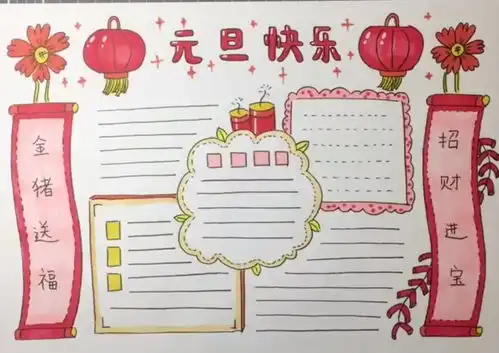 元旦快乐
金猪送福
招财进宝